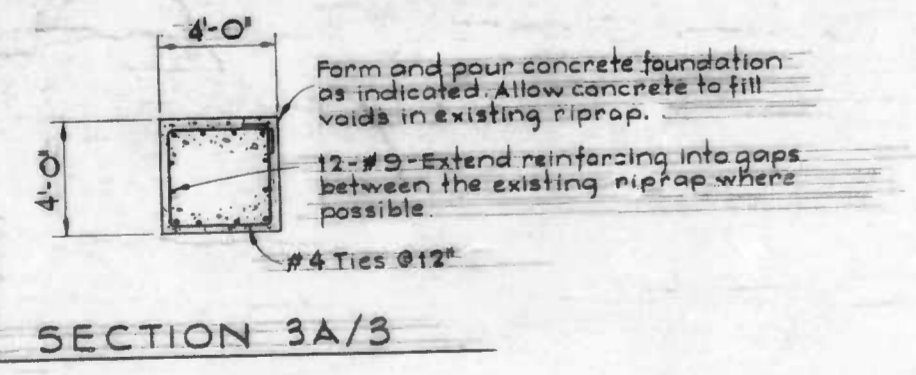 4'-0"
Form and pour concrete foundation
as indicated. Allow concrete to fill
voids in existing riprap.
4'-0"
12-#9-Extend reinforcing into gaps
between the existing riprap where
possible.
#4 Ties @12"
SECTION 3A/3